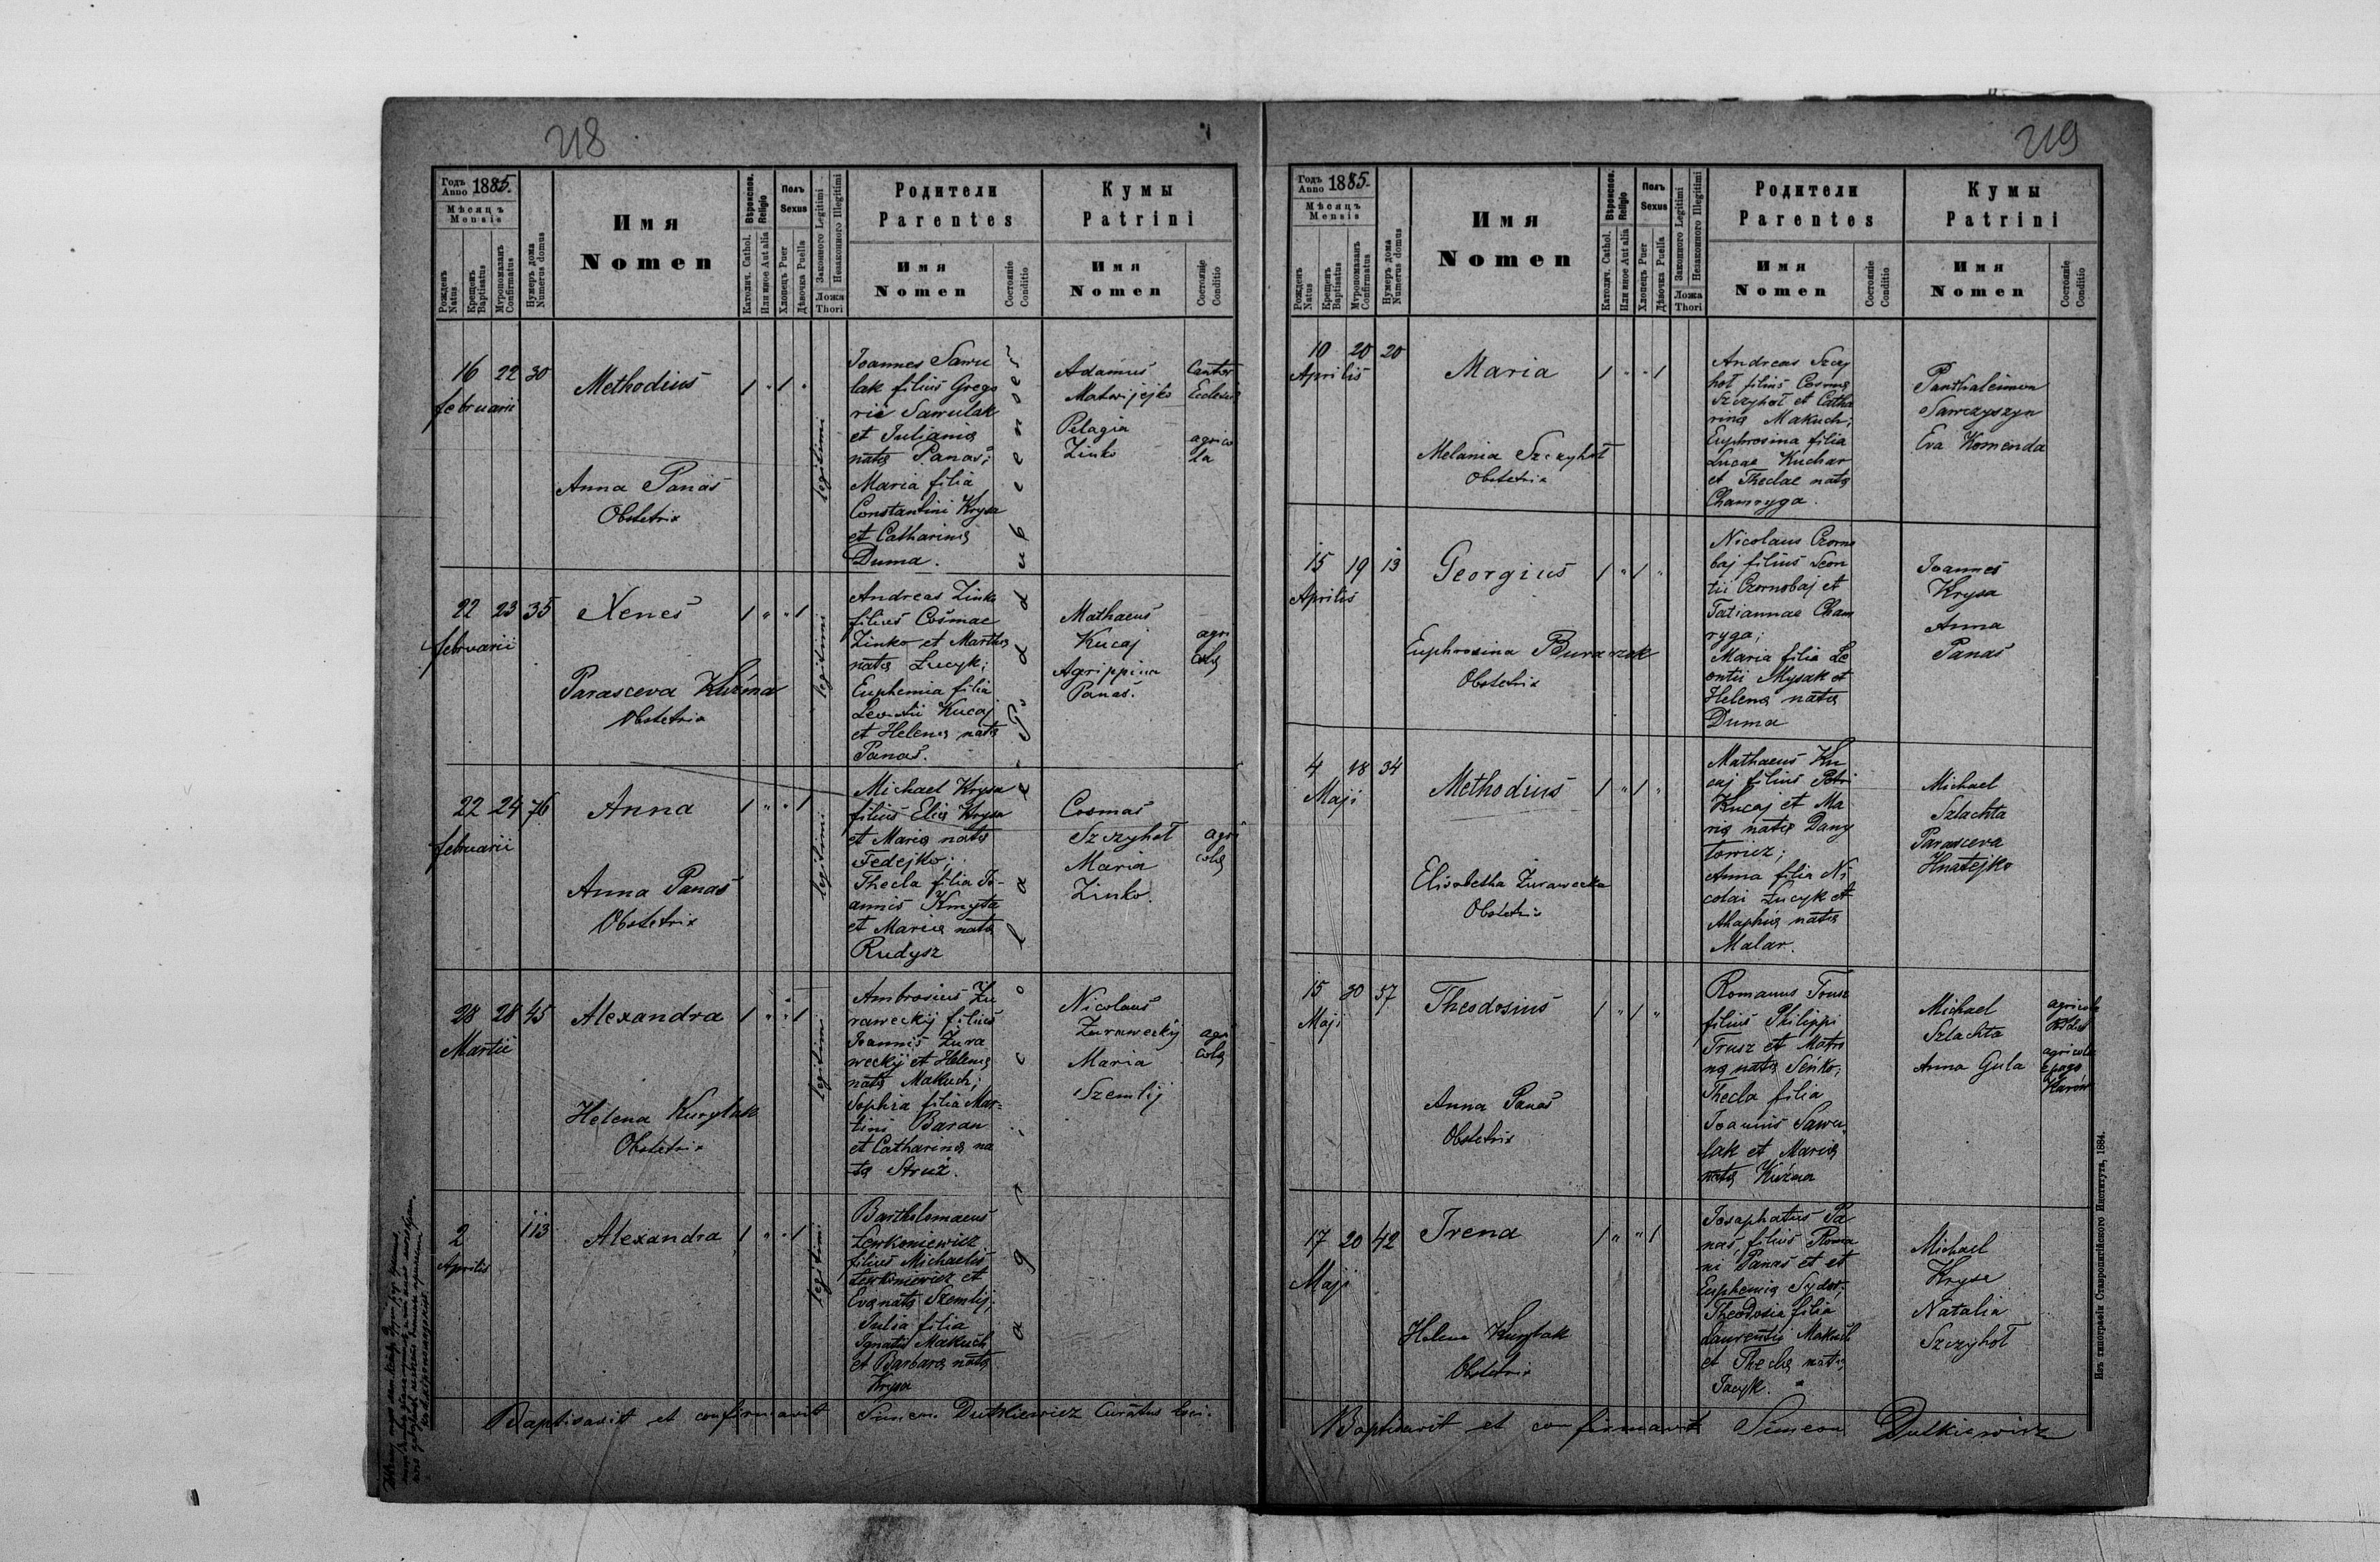 218
Годъ Anno 1885.
Мѣсяцъ
Mensis
Рожденъ Natus
Крещенъ Baptisatus
Мѵропомазанъ Confirmatus
Нумеръ дома Numerus domus
Имя
Nomen
Вѣроиспов. Religio
Католич. Cathol.
Или иное Aut alia
Полъ
Sexus
Хлопецъ Puer
Дѣвочка Puella
Законного Legitimi
Незаконного Illegitimi
Ложа
Thori
Родители
Parentes
Имя
Nomen
Состояніе
Conditio
Кумы
Patrini
Имя
Nomen
Состояніе
Conditio
16 22 30
februarii
Methodius
1 " 1 "
Anna Panas
Obstetrix
legitimi
Joannes Sawu
lak filius Grego
rii Sawulak
et Juliannę
natę Panas;
Maria filia
Constantini Krysa
et Catharinę
Duma.
Adamus
Matwijejko
Pelagia
Zinko
Cantor
Ecclesiæ
agrico
la
22 23 35
februarii
Xenes
1 " " 1
Parasceva Kuźma
Obstetrix
legitimi
Andreas Zinko
filius Cosmae
Zinko et Marthę
natę Lucyk;
Euphemia filia
Leontii Kucaj
et Helenę natę
Panas.
Mathaeus
Kucaj
Agrippina
Panas.
agri
colę
22 24 76
februarii
Anna
1 " " 1
Anna Panas
Obstetrix
legitimi
Michael Krysa
filius Elię Krysa
et Marię natę
Fedejko;
Thecla filia Jo-
annis Kmyta
et Marię natę
Rudysz
Cosmas
Szczyhoł
Maria
Zinko.
agri
colę
28 28 45
Martii
Alexandra
1 " " 1
Helena Kurylak
Obstetrix
legitimi
Ambrosius Żu
raweckij filius
Joannis Żura
weckij et Helenę
natę Makuch;
Sophia filia Mar-
tini Baran
et Catharinę na
tę Struż.
Nicolaus
Żuraweckij
Maria
Szemlij
agri
colę
2 113
Aprilis
Alexandra
1 " " 1
legitimi
Bartholomaeus
Lewkoniewicz
filius Michaelis
Lewkoniewicz et
Evę natę Szemlij;
Julia filia
Ignatii Makuch
et Barbarę natę
Krysa
Baptisavit et confirmavit Simeon Dutkiewicz Curatus loci.
219
Годъ Anno 1885.
Мѣсяцъ
Mensis
Рожденъ Natus
Крещенъ Baptisatus
Мѵропомазанъ Confirmatus
Нумеръ дома Numerus domus
Имя
Nomen
Вѣроиспов. Religio
Католич. Cathol.
Или иное Aut alia
Полъ
Sexus
Хлопецъ Puer
Дѣвочка Puella
Законного Legitimi
Незаконного Illegitimi
Ложа
Thori
Родители
Parentes
Имя
Nomen
Состояніе
Conditio
Кумы
Patrini
Имя
Nomen
Состояніе
Conditio
10 20 20
Aprilis
Maria
1 " " 1
Melania Szczyhoł
Obstetrix
Andreas Szczy
hoł filius Cosmę
Szczyhoł et Catha
rinę Makuch;
Euphrosina filia
Lucae Kuchar
et Theclae natę
Chamryga.
Panthaleimon
Sawczyszyn
Eva Komenda
15 19 13
Aprilis
Georgius
1 " 1 "
Euphrosina Buraczok
Obstetrix
Nicolaus Czorno
baj filius Leon
tii Czornobaj et
Tatiannae Cham
ryga;
Maria filia Le
ontii Mysak et
Helenę natę
Duma
Joannes
Krysa
Anna
Panas
4 18 34
Maji
Methodius
1 " 1 "
Elisabetha Żurawecka
Obstetrix
Mathaeus Ku
caj filius Petri
Kucaj et Ma
rię natę Dany
łowicz;
Anna filia Ni
colai Łucyk et
Ahaphię natę
Malar.
Michael
Szlachta
Parasceva
Hnatejko
15 30 57
Maji
Theodosius
1 " 1 "
Anna Panas
Obstetrix
Romanus Trusz
filius Philippi
Trusz et Matro
nę natę Seńko;
Thecla filia
Joannis Sawu
lak et Marię
natę Kuźma
Michael
Szlachta
Anna Gula
agricola
agricola
e pago
17 20 42
Maji
Irena
1 " " 1
Helena Kurylak
Obstetrix
Josaphatus Pa
nas, filius Roma
ni Panas et et
Euphemię Sydor;
Theodosia filia
Laurentii Makuch
et Theclę natę
Jacyk.
Michael
Krysa
Natalia
Szczyhoł
Baptisavit et confirmavit Simeon Dutkiewicz
Изъ типографіи Ставропигійского Института, 1884.